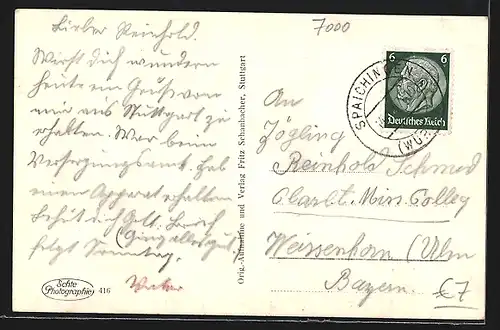 7000
Lieber Reinhold.
Wirst dich wundern
heute ein Gruß von
mir aus Stuttgart zu
erhalten. War beim
Versorgungsamt. Hab
einen Apparat erhalten
Behüt dich Gott. Brief
(Ging alles gut)
folgt Sonntag.
Vater
Echte
Photographie
416
Orig.-Aufnahme und Verlag Fritz Schanbacher, Stuttgart
6 6
Deutsches Reich
SPAICHINGEN
(WÜRTT)
An
Zögling
Reinhold Schmed
Claret. Miss. Colleg
Weissenhorn (Ulm
Bayern.
€7